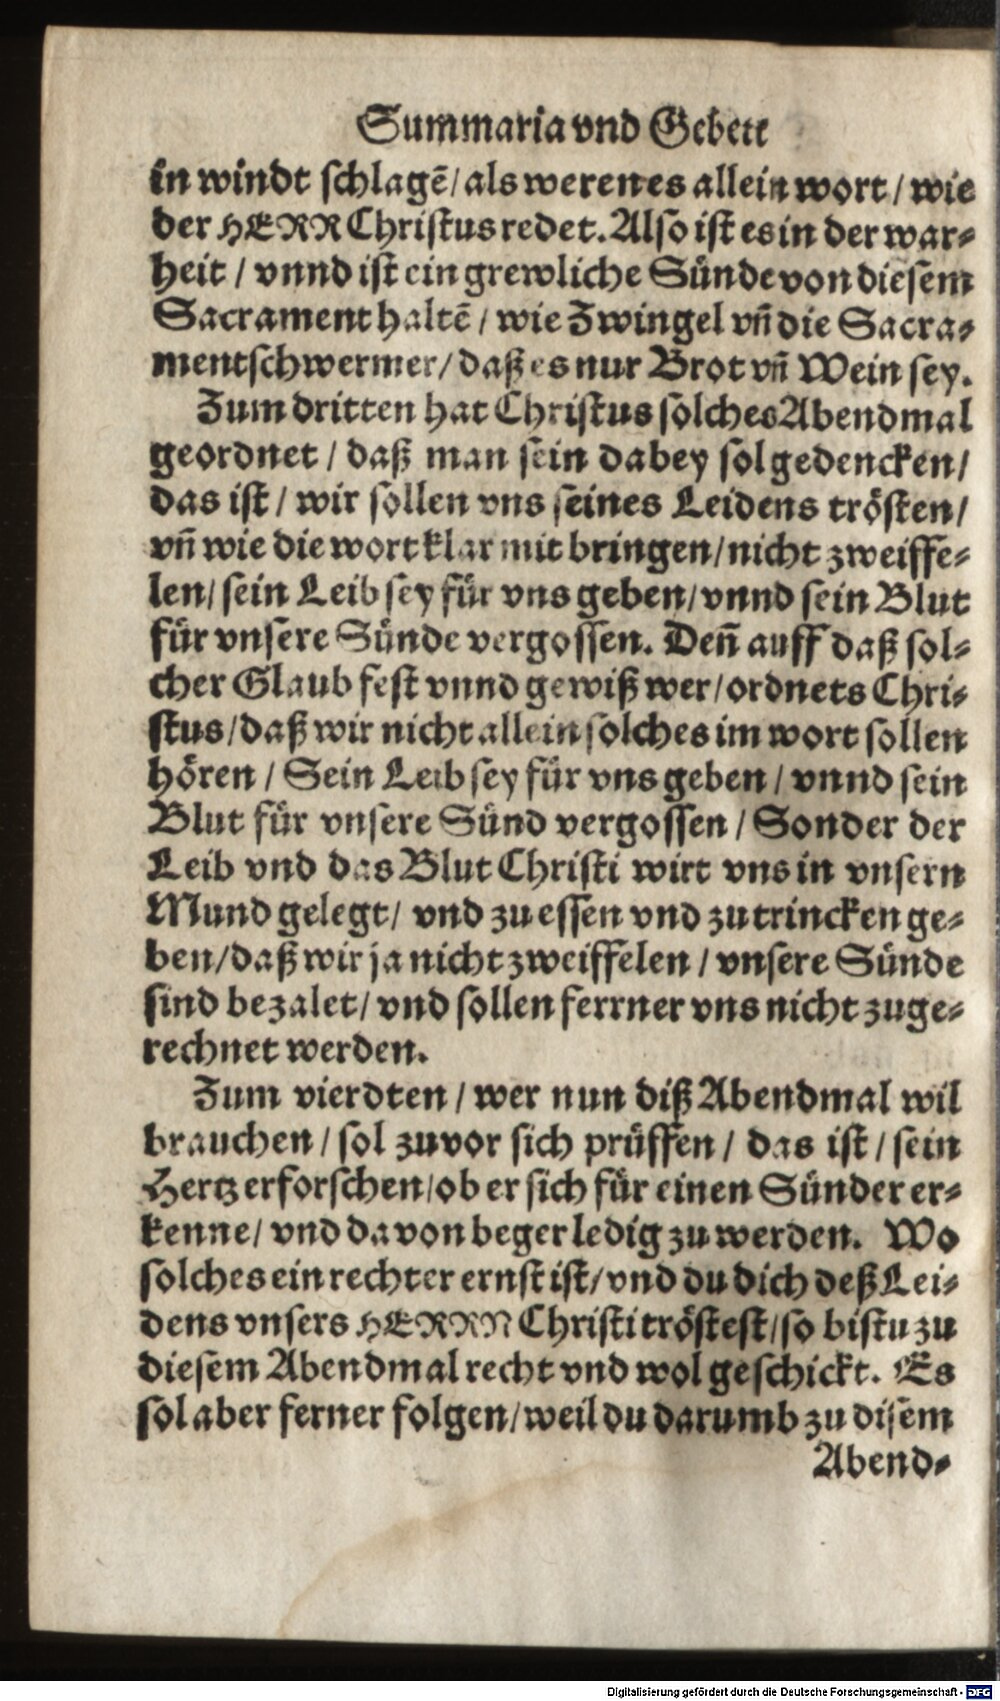 Summaria vnd Gebett
in windt schlagē / als weren es allein wort / wie
der HERR Christus redet. Also ist es in der war-
heit / vnnd ist ein grewliche Sünde von diesem
Sacrament haltē / wie Zwingel vn̄ die Sacra-
mentschwermer / daß es nur Brot vn̄ Wein sey.
Zum dritten hat Christus solches Abendmal
geordnet / daß man sein dabey sol gedencken /
das ist / wir sollen vns seines Leidens trösten /
vn̄ wie die wort klar mit bringen / nicht zweiffe-
len / sein Leib sey für vns geben / vnnd sein Blut
für vnsere Sünde vergossen. Den̄ auff daß sol-
cher Glaub fest vnnd gewiß wer / ordnets Chri-
stus / daß wir nicht allein solches im wort sollen
hören / Sein Leib sey für vns geben / vnnd sein
Blut für vnsere Sünd vergossen / Sonder der
Leib vnd das Blut Christi wirt vns in vnsern
Mund gelegt / vnd zu essen vnd zu trincken ge-
ben / daß wir ja nicht zweiffelen / vnsere Sünde
sind bezalet / vnd sollen ferrner vns nicht zuge-
rechnet werden.
Zum vierdten / wer nun diß Abendmal wil
brauchen / sol zuvor sich prüffen / das ist / sein
Hertz erforschen / ob er sich für einen Sünder er-
kenne / vnd davon beger ledig zu werden. Wo
solches ein rechter ernst ist / vnd du dich deß Lei-
dens vnsers HERRN Christi tröstest / so bistu zu
diesem Abendmal recht vnd wol geschickt. Es
sol aber ferner folgen / weil du darumb zu disem
Abend-
Digitalisierung gefördert durch die Deutsche Forschungsgemeinschaft - DFG